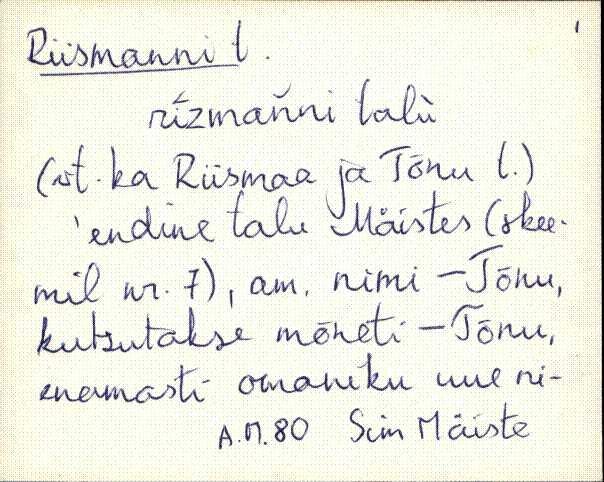 1
Riismanni t.
rízmǎnni talù
(vt. ka Riismaa ja Tõnu t.)
'endine talu Mäistes (skee-
mil nr. 7), am. nimi – Tõnu,
kutsutakse mõneti – Tõnu,
enamasti omaniku uue ni-
A.M. 80 Siim Mäiste